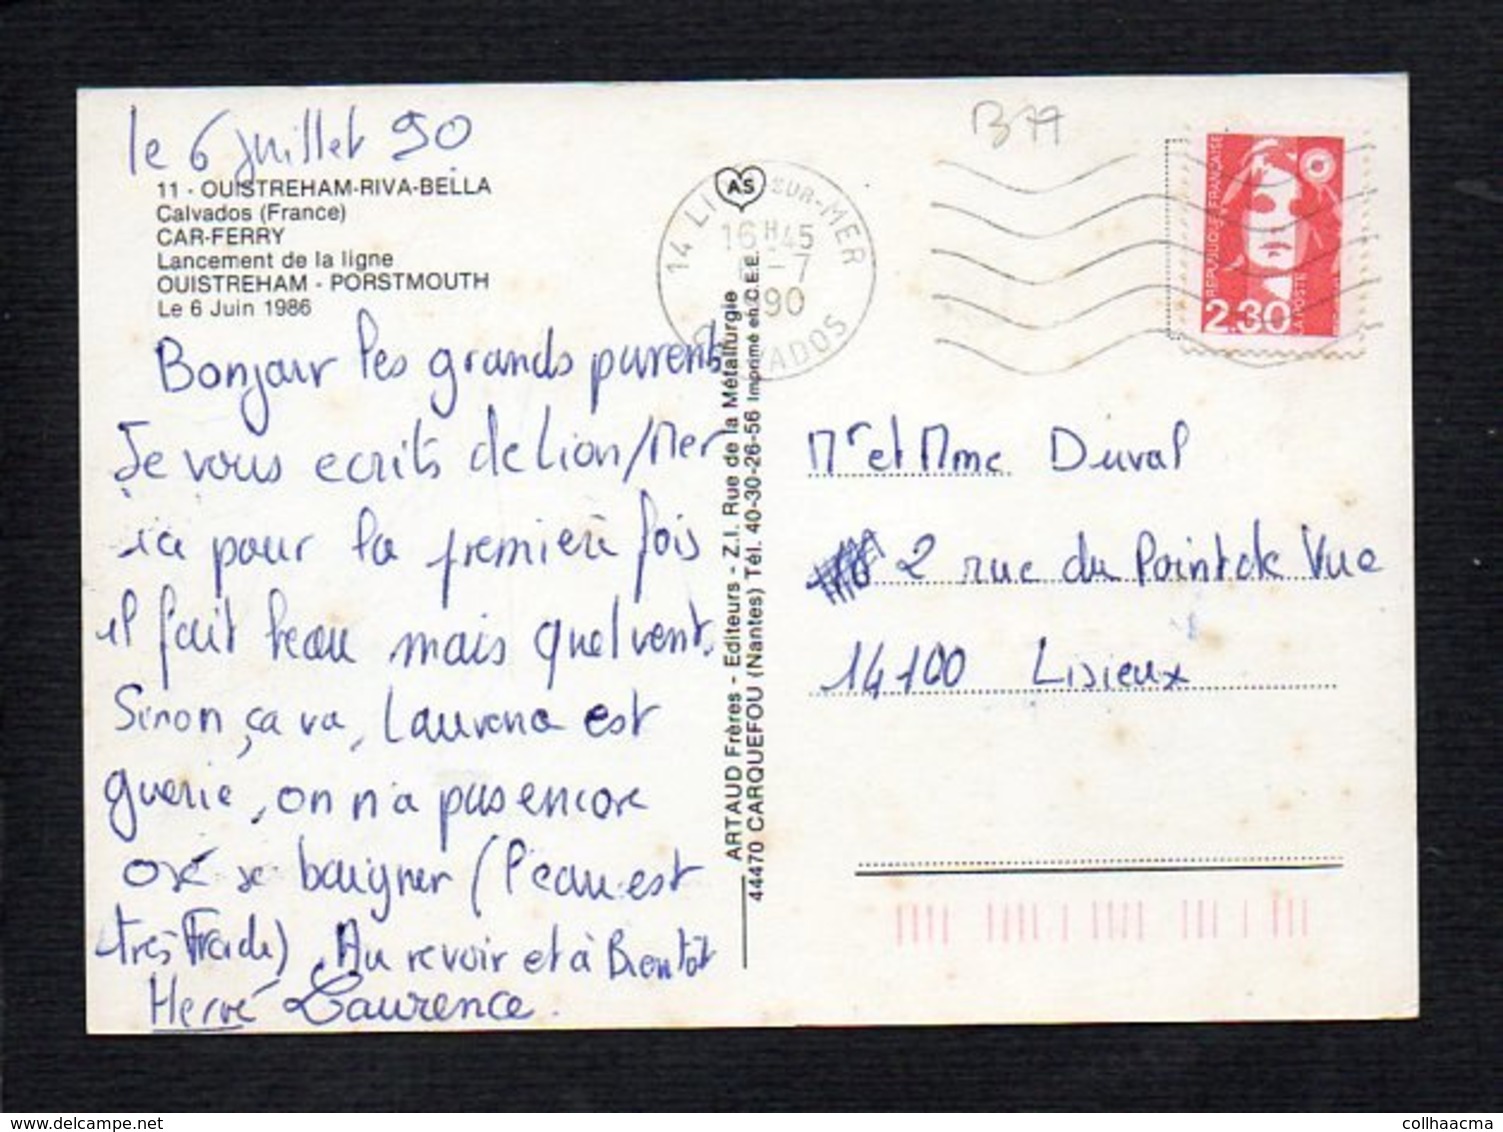 le 6 juillet 90
11 - OUISTREHAM-RIVA-BELLA
Calvados (France)
CAR-FERRY
Lancement de la ligne
OUISTREHAM - PORSTMOUTH
Le 6 Juin 1986
Bonjour les grands parents
Je vous ecrits de Lion/Mer
ici pour la première fois
il fait beau mais quel vent.
Sinon, ça va, Laurena est
guerie, on n'a pas encore
osé se baigner (l'eau est
très Froide). Au revoir et à Bientôt
Hervé Laurence.
ARTAUD Frères - Editeurs - Z.I. Rue de la Métallurgie
44470 CARQUEFOU (Nantes) Tél. 40-30-26-56 Imprimé en C.E.E.
AS
14 LI SUR-MER
16 H 45
-7
1990
VADOS
B77
REPUBLIQUE FRANÇAISE
2.30
LA POSTE
Mr et Mme Duval
2 rue du Point de Vue
14100 Lisieux
collhaacma